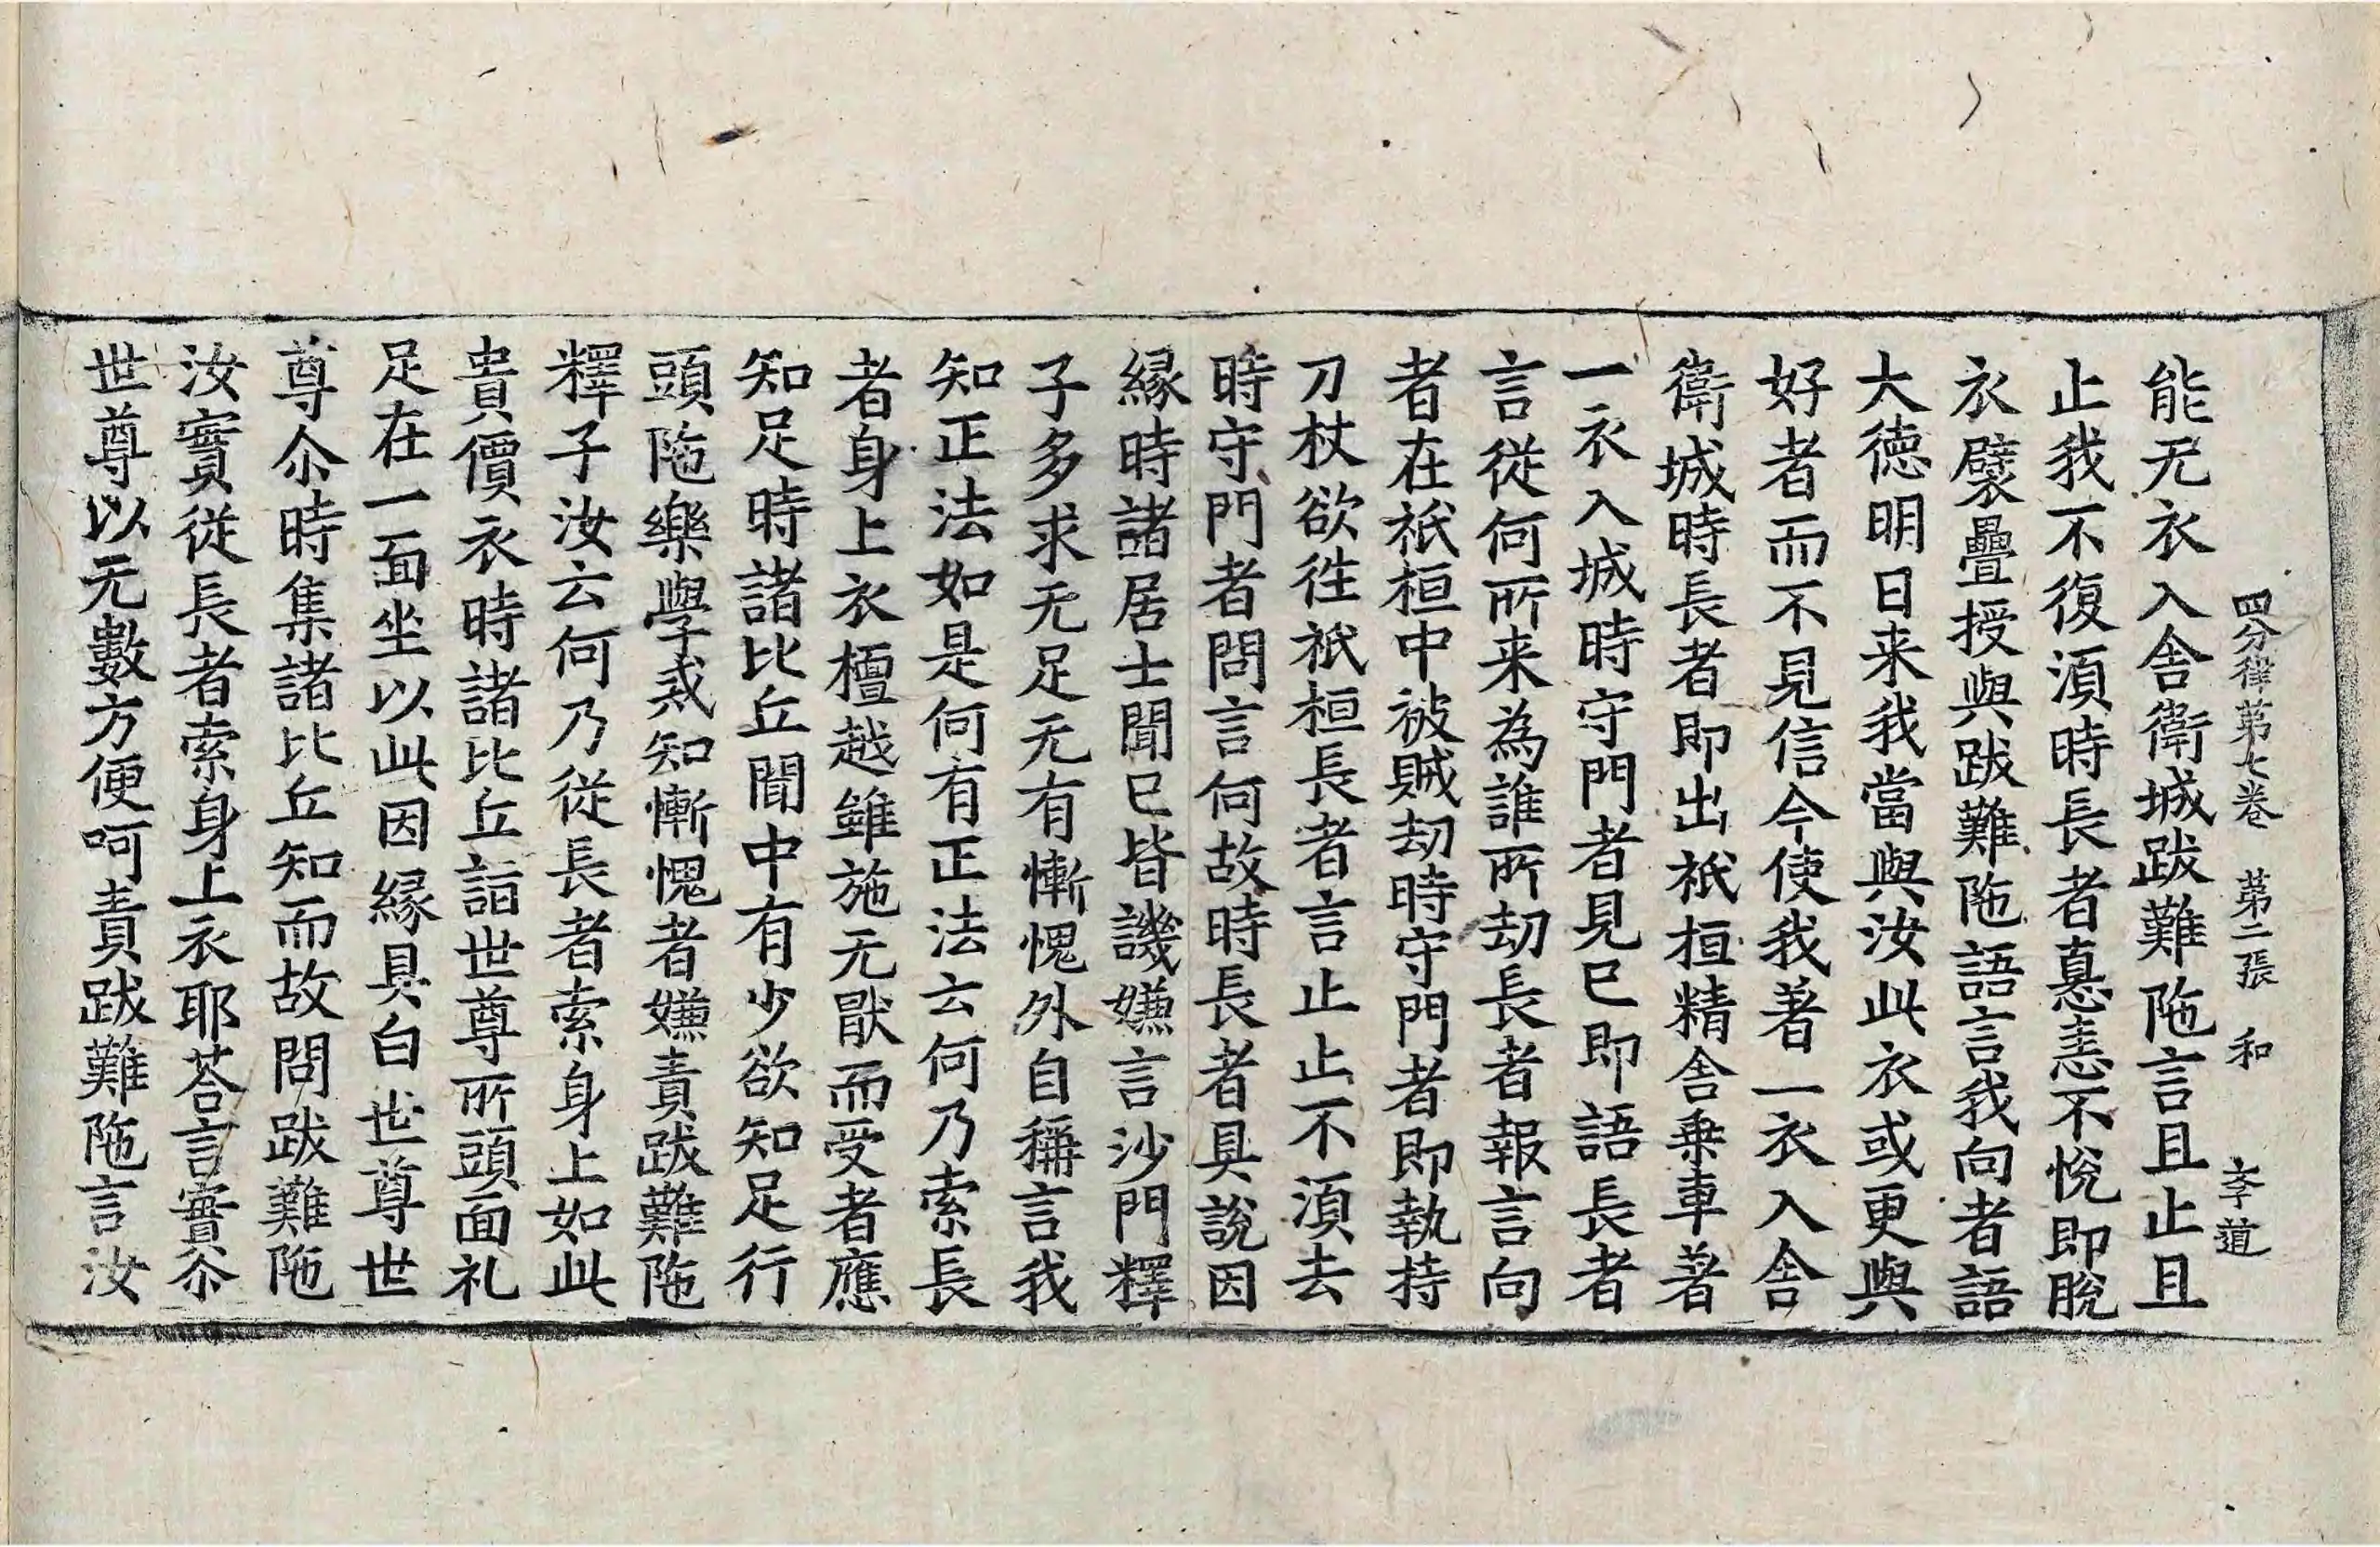 四分律苐七卷　苐二張　和　李道
能无衣入舎衛城跋難陁言且止且
止我不復湏時長者恚不悅即脫
衣襞疊授與跋難陁語言我向者語
大德明日来我當與汝此衣或更與
好者而不見信今使我著一衣入舎
衛城時長者即出祇桓精舎乗車著
一衣入城時守門者見已即語長者
言從何所来為誰所劫長者報言向
者在祇桓中被賊劫時守門者即執持
刀杖欲徃祇桓長者言止止不湏去
時守門者問言何故時長者具說因
緣時諸居士聞已皆譏嫌言沙門釋
子多求无足无有慚愧外自稱言我
知正法如是何有正法云何乃索長
者身上衣檀越雖施无猒而受者應
知足時諸比丘聞中有少欲知足行
頭陁樂學戒知慚愧者嫌責跋難陁
釋子汝云何乃從長者索身上如此
貴價衣時諸比丘詣世尊所頭面礼
足在一面坐以此因緣具白世尊世
尊尒時集諸比丘知而故問跋難陁
汝實從長者索身上衣耶荅言實尒
世尊以无數方便呵責跋難陁言汝